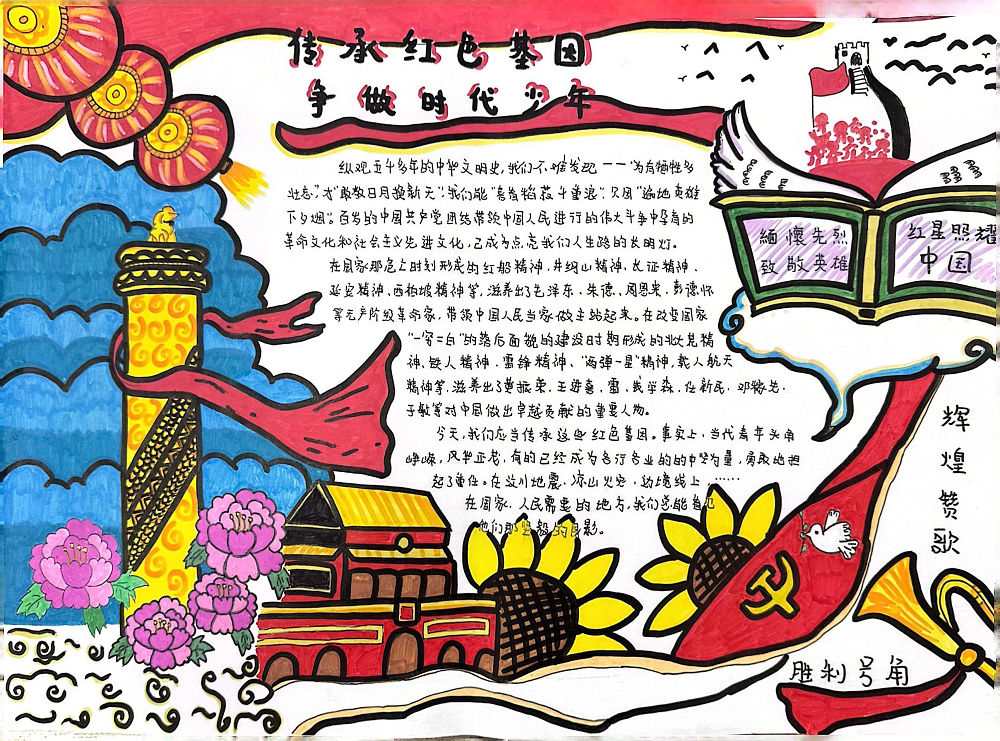 传承红色基因
争做时代少年
纵观五千多年的中华文明史,我们不难发现——“为有牺牲多
壮志”,才“敢教日月换新天”;我们能“喜看稻菽千重浪”,只因“遍地英雄
下夕烟”。百岁的中国共产党团结带领中国人民进行的伟大斗争中孕育的
革命文化和社会主义先进文化,已成为点亮我们人生路的长明灯。
在国家那危亡时刻形成的红船精神,井纲山精神,长征精神,
延安精神,西柏坡精神等,滋养出了毛泽东、朱德、周恩来,彭德怀
等无产阶级革命家,带领中国人民当家做主站起来。在改变国家
“一穷二白”的落后面貌的建设时期形成的北大荒精
神,铁人精神,雷锋精神,“两弹一星”精神,载人航天
精神等,滋养出了黄振荣,王进喜,雷,钱学森,任新民,邓稼先,
于敏等对中国做出卓越贡献的重要人物。
今天,我们应当传承这些红色基因。事实上,当代青年头角
峥嵘,风华正茂,有的已经成为各行各业的的中坚力量,勇敢地担
起了重任。在汶川地震,凉山火灾,边境线上,……
在国家、人民需要的地方,我们总能看见
他们那坚毅的身影。
緬懷先烈
致敬英雄
红星照耀
中国
辉煌赞歌
胜利号角